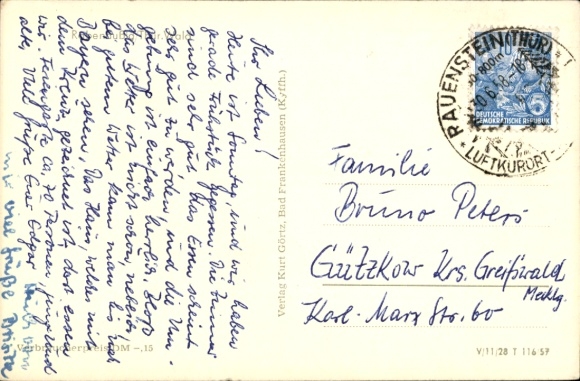 Rauenstein Thür. Wald
Ihr Lieben!
Heute ist Sonntag, und wir haben
grade Frühstück gegessen. Die Zimmer
sind sehr gut, das Essen scheint
sehr gut zu werden, und die Um-
gebung ist einfach herrlich. Bloß
das Wetter ist nicht schön, neblig,
bei gutem Wetter kann man bis nach
Bayern sehen. Das Haus, welches mit
dem Kreuz gezeichnet ist, dort essen
wir. Feriengäste ca. 70 Personen, jung und
alt. Viele Grüße Eure Edgar
viele Grüße
Verbraucherpreis DM -,15
Verlag Kurt Görtz, Bad Frankenhausen (Kyffh.)
RAUENSTEIN (THÜR)
LUFTKURORT
DEUTSCHE
DEMOKRATISCHE REPUBLIK
Familie
Bruno Peters
Gützkow Krs. Greifswald
Mecklg.
Karl-Marx Str. 60
V/11/28 T 116 59